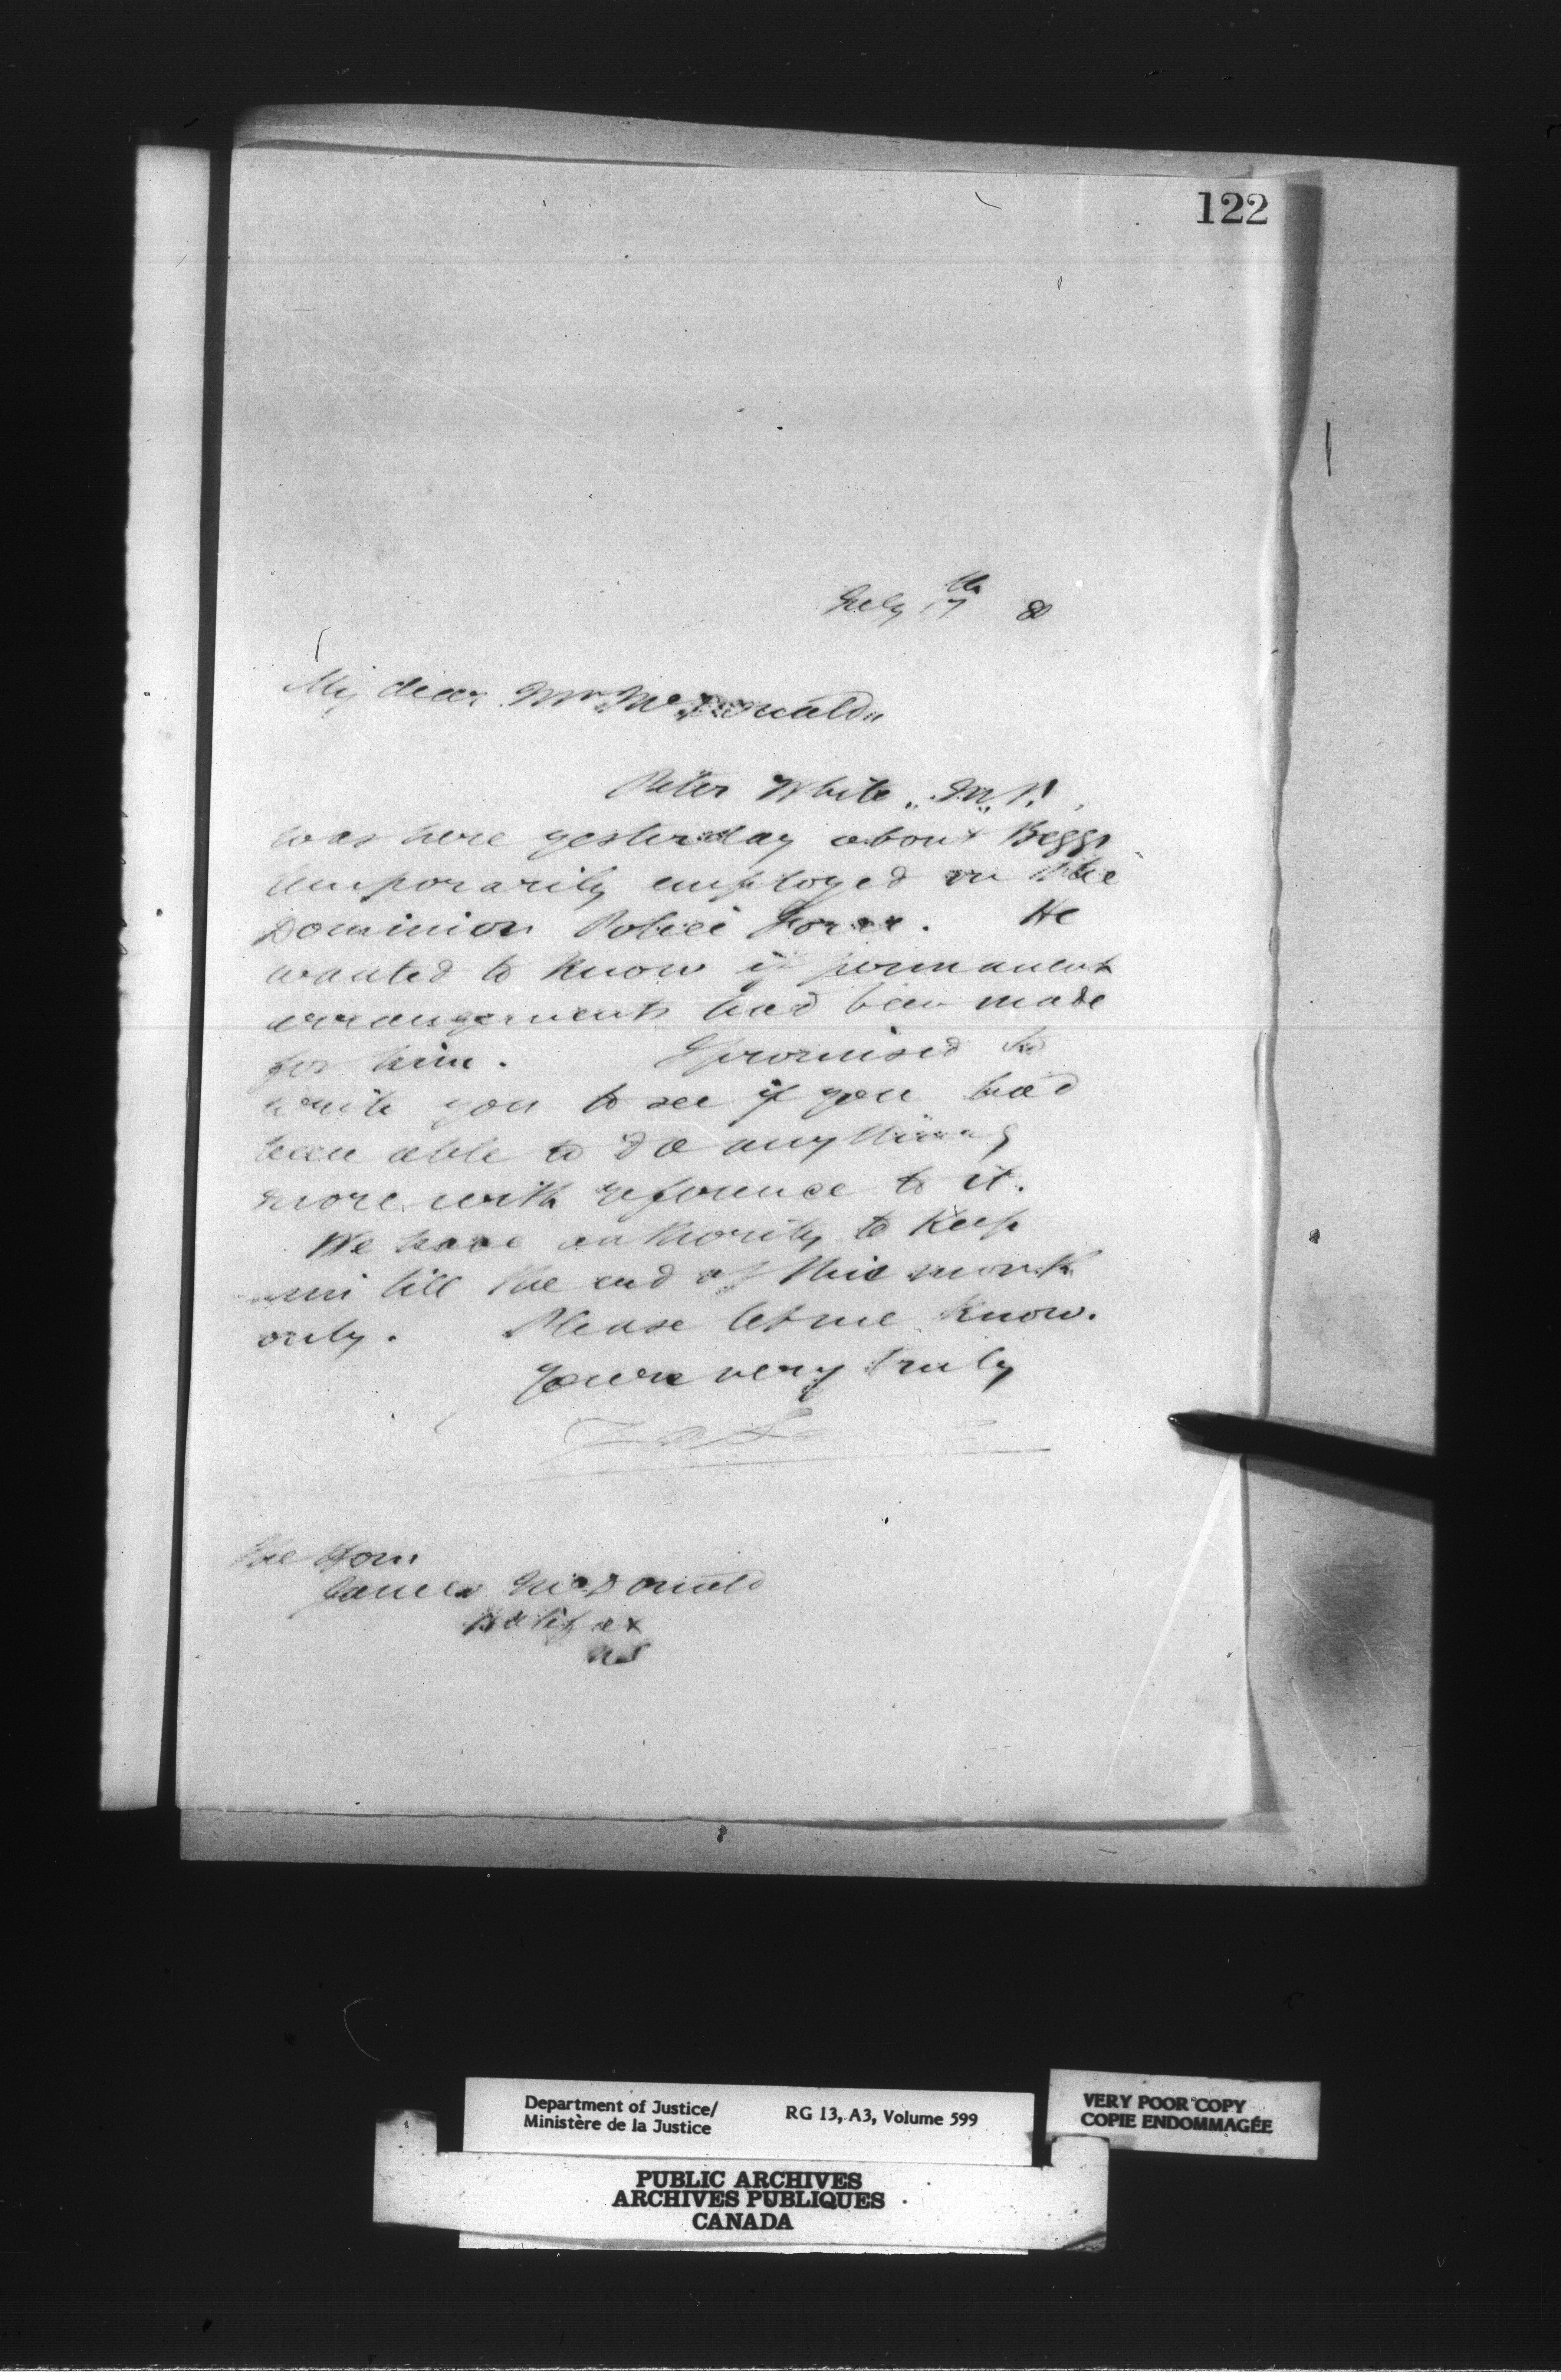 122
July 17th 80
My dear Mr. McDonald,,
Peter White,, M,, P.
was here yesterday about Beggs
temporarily employed on the
Dominion Police Force. He
wanted to know if permanent
arrangements had been made
for him. I promised to
write you to see if you had
been able to do anything
more with reference to it.
We have authority to keep
him till the end of this month
only. Please let me know.
Yours very truly
The Hon.
James McDonald
Halifax
NS
Department of Justice/ RG 13, A3, Volume 599
Ministère de la Justice
VERY POOR COPY
COPIE ENDOMMAGÉE
PUBLIC ARCHIVES
ARCHIVES PUBLIQUES
CANADA